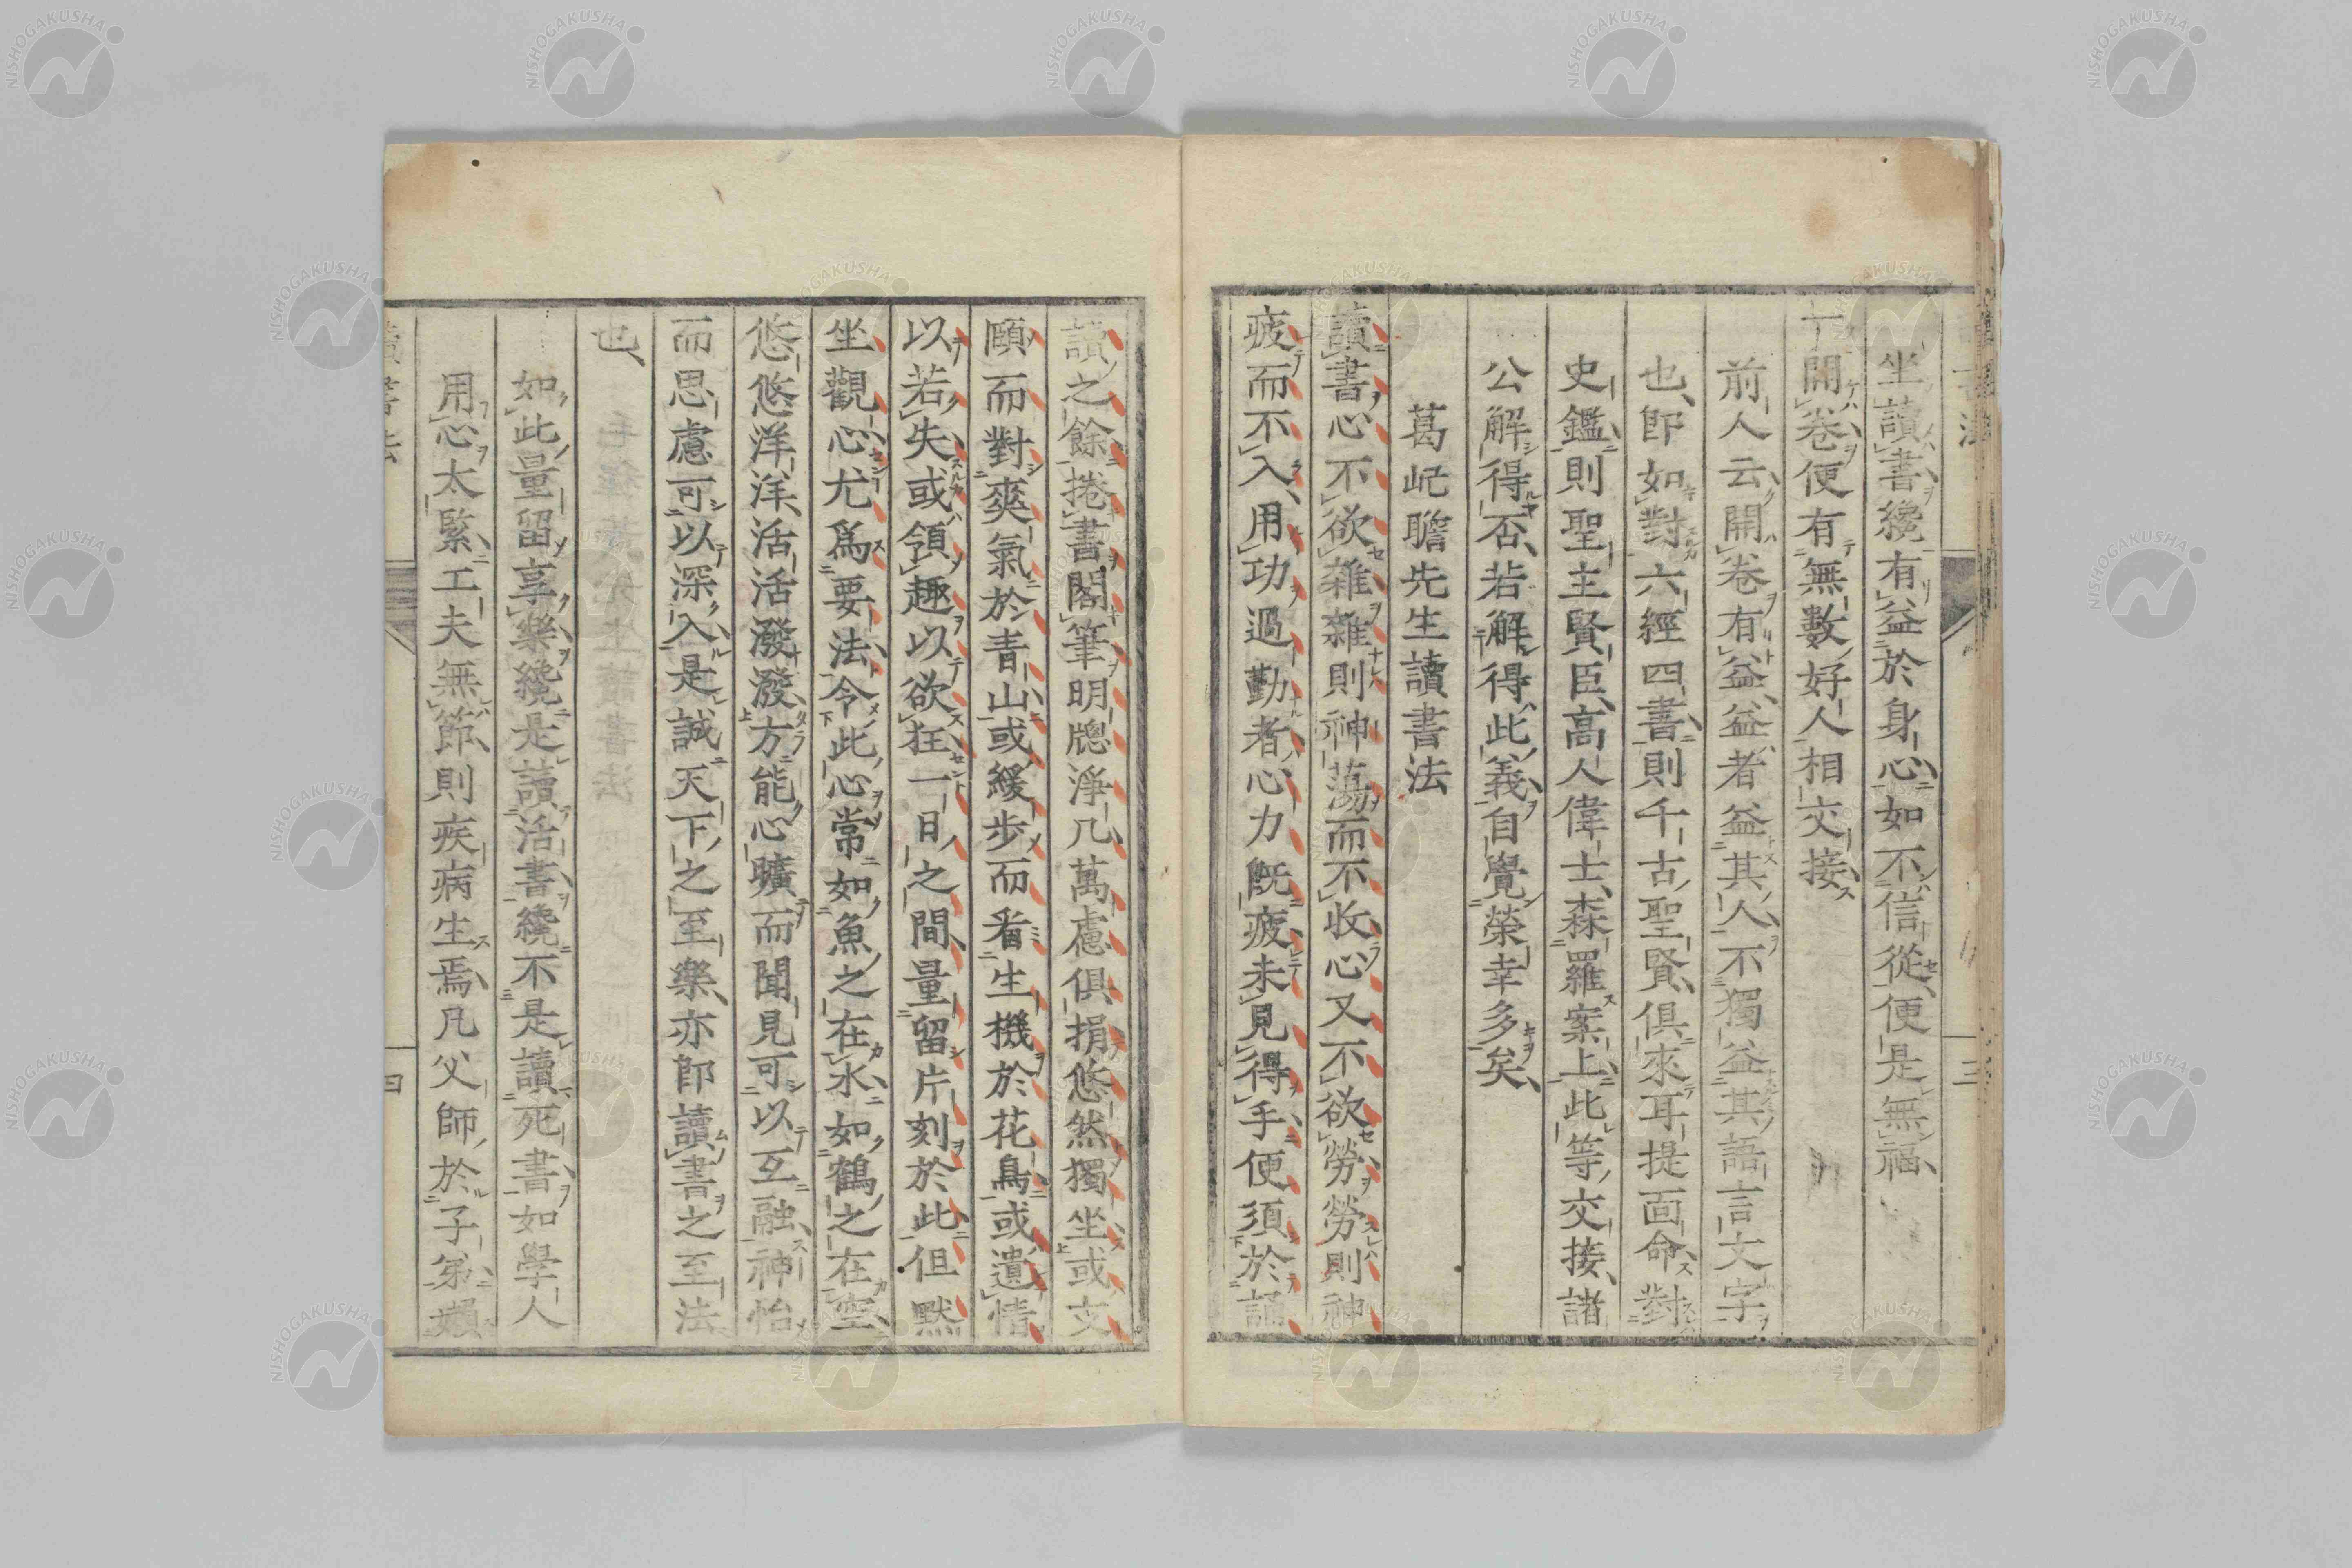 坐讀書纔有益於身心如不信從便是無福
開卷便有無數好人相交接
前人云開卷有益益者益其人不獨益其語言文字
也卽如對六經四書則千古聖賢俱來耳提面命對
史鑑則聖主賢臣高人偉士森羅案上此等交接諸
公解得否若解得此義自覺榮幸多矣
葛屺瞻先生讀書法
讀書心不欲雜雜則神蕩而不收心又不欲勞勞則神
疲而不入用功過勤者心力旣疲未見得手便須於誦
讀之餘捲書閣筆明牕淨几萬慮俱捐悠然獨坐或支
頤而對爽氣於青山或緩步而看生機於花鳥或遺情
以若失或領趣以欲狂一日之間量留片刻於此但默
坐觀心尤爲要法令此心常如魚之在水如鶴之在空
悠悠洋洋活活潑潑方能心曠而聞見可以互融神怡
而思慮可以深入是誠天下之至樂亦卽讀書之至法
也
如此量留享樂纔是讀活書纔不是讀死書如學人
用心太緊工夫無節則疾病生焉凡父師於子弟嬾
NISHOGAKUSHA